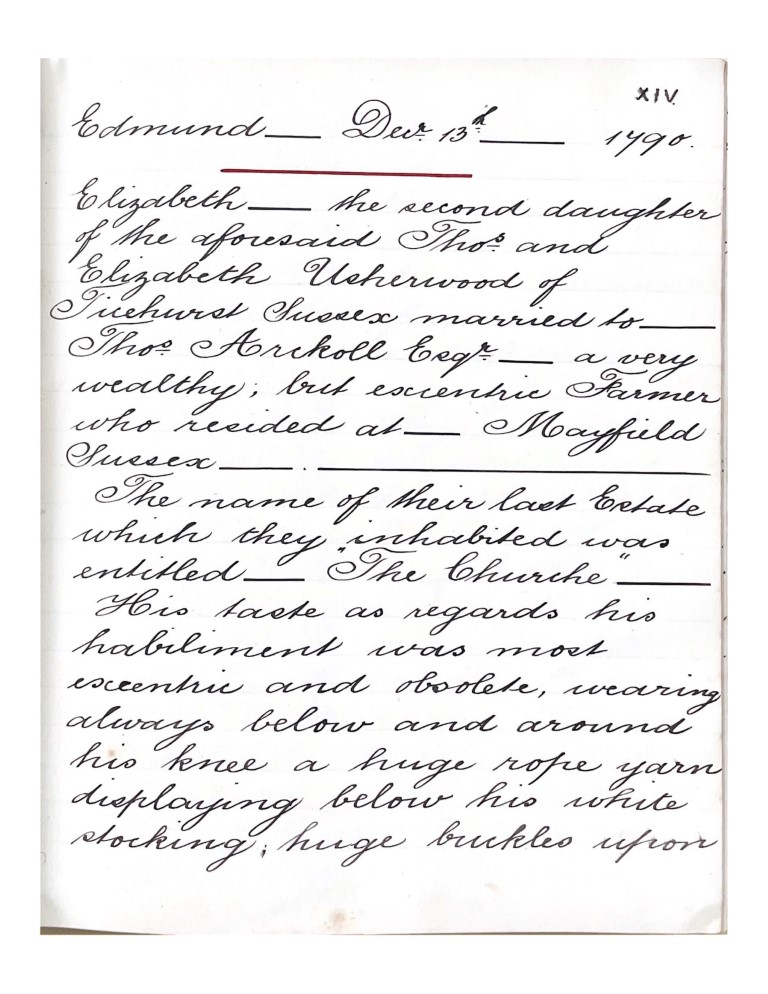 XIV.
Edmund — Decr. 13th — 1790.
Elizabeth — the second daughter
of the aforesaid Thos. and
Elizabeth Usherwood of
Ticehurst Sussex married to —
Thos. Arckoll Esqr. — a very
wealthy; but excentric Farmer
who resided at — Mayfield
Sussex — . —
The name of their last Estate
which they inhabited was
entitled — "The Churche" —
His taste as regards his
habiliment was most
excentric and obsolete, wearing
always below and around
his knee a huge rope yarn
displaying below his white
stocking; huge buckles upon